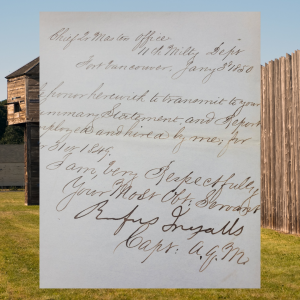 Chief Qr Masters Office
11th Milty Dept
Fort Vancouver. Jany 3d 1850
honor herewith to transmit to your
ummary Statement and Report
mployed and hired by me, for
31st 1849.
I am, Very Respectfully
Your Most Obt. Servant
Rufus Ingalls
Capt. A.Q.M.